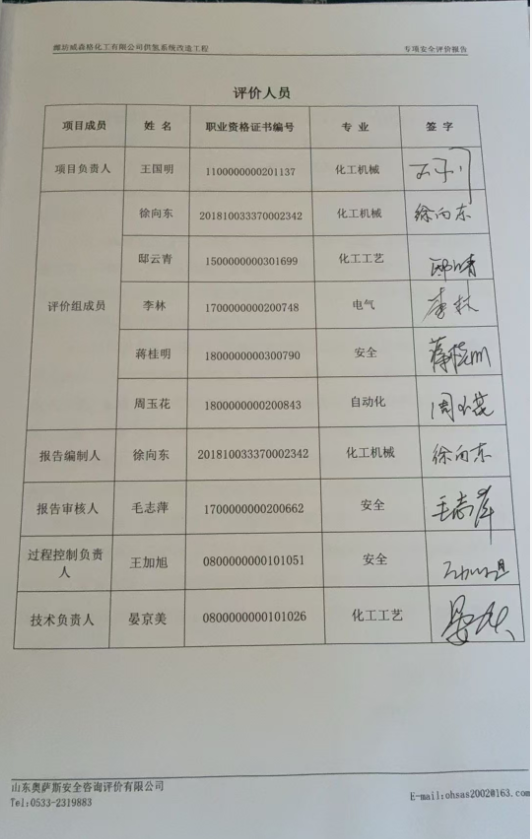 潍坊威森格化工有限公司供氢系统改造工程 专项安全评价报告
评价人员
项目成员 姓 名 职业资格证书编号 专 业 签 字
项目负责人 王国明 1100000000201137 化工机械
徐向东 201810033370002342 化工机械 徐向东
邸云青 1500000000301699 化工工艺
评价组成员 李林 1700000000200748 电气 李林
蒋桂明 1800000000300790 安全 蒋桂明
周玉花 1800000000200843 自动化 周玉花
报告编制人 徐向东 201810033370002342 化工机械 徐向东
报告审核人 毛志萍 1700000000200662 安全 毛志萍
过程控制负责
人 王加旭 0800000000101051 安全
技术负责人 晏京美 0800000000101026 化工工艺
山东奥萨斯安全咨询评价有限公司
Tel:0533-2319883 E-mail:ohsas2002@163.com